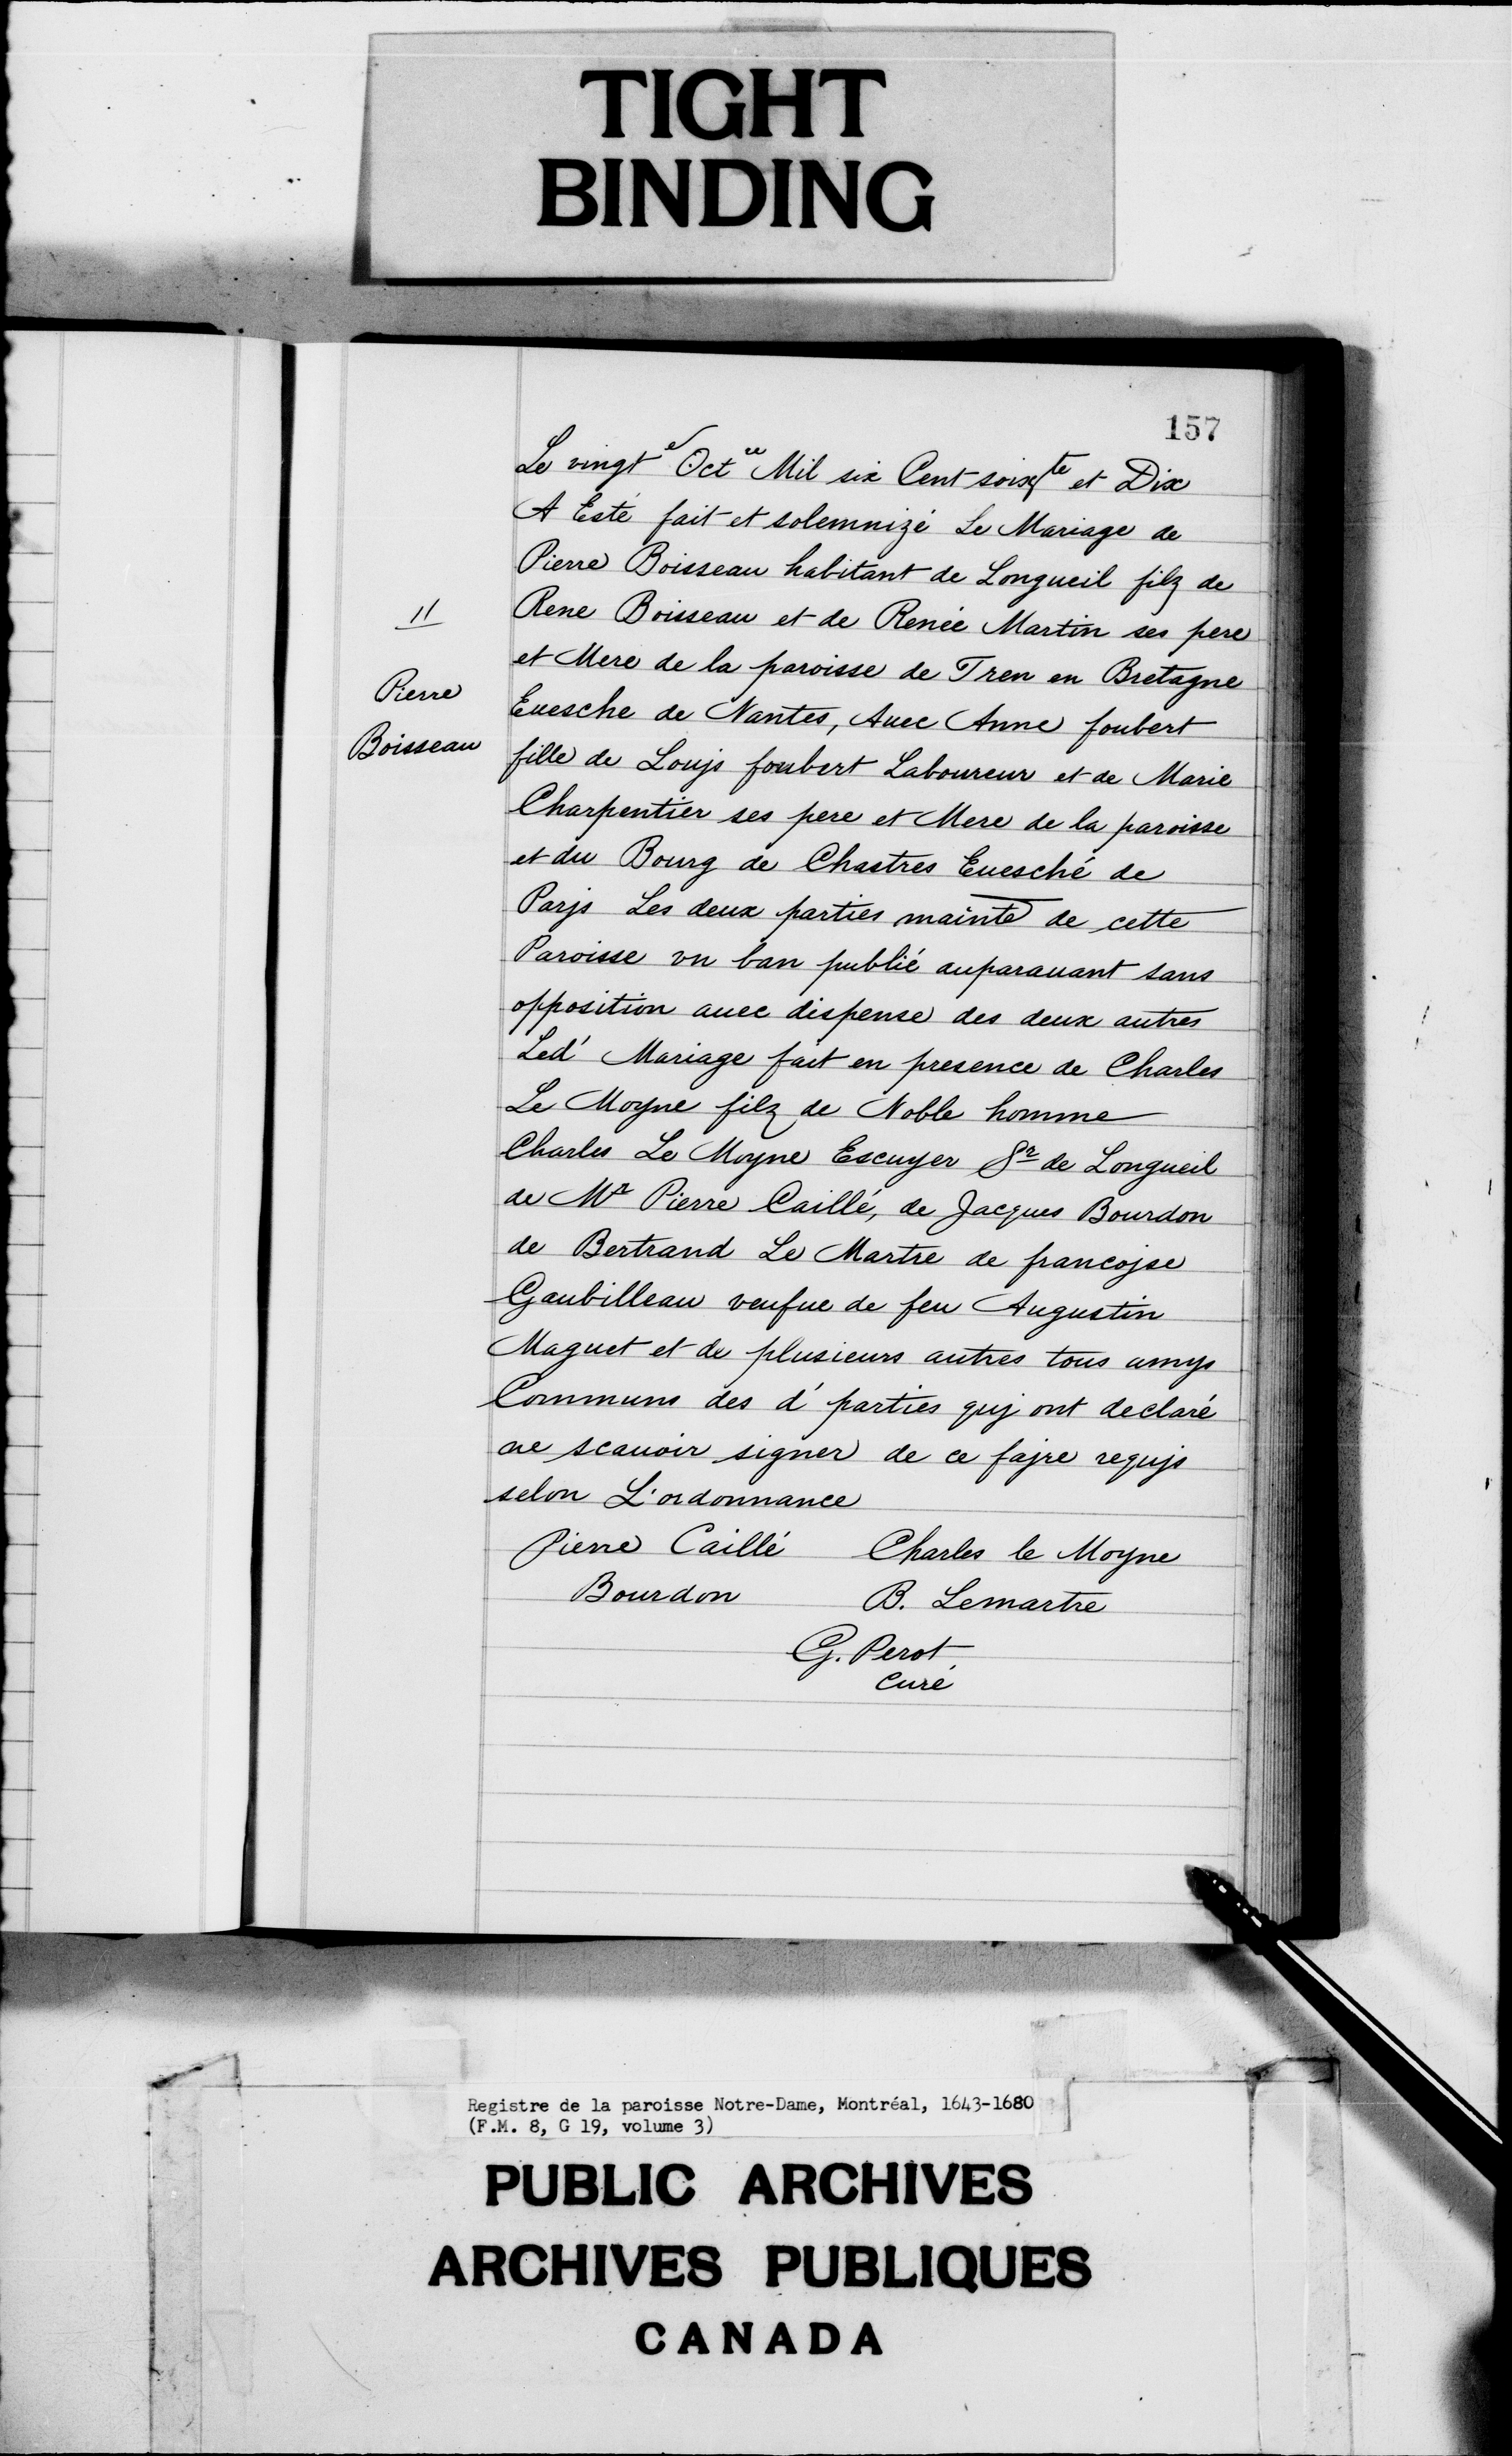 TIGHT
BINDING
157
Le vingt e Oct re Mil six Cent soixte et Dix
A Esté fait et solemnizé Le Mariage de
Pierre Boisseau habitant de Longueil filz de
11
Rene Boisseau et de Renée Martin ses pere
et Mere de la paroisse de Tren en Bretagne
Pierre
Euesche de Nantes, Auec Anne foubert
Boisseau
fille de Loujs foubert Laboureur et de Marie
Charpentier ses pere et Mere de la paroisse
et du Bourg de Chastres Euesché de
Parjs Les deux parties mainte de cette
Paroisse vn ban publié auparauant sans
opposition auec dispense des deux autres
Led' Mariage fait en presence de Charles
Le Moyne filz de Noble homme
Charles Le Moyne Escuyer Sr de Longueil
de Mr Pierre Caillé, de Jacques Bourdon
de Bertrand Le Martre de francojse
Gaubilleau veufue de feu Augustin
Maguet et de plusieurs autres tous amys
Communs des d' parties quj ont declaré
ne scauoir signer de ce fajre requjs
selon L'ordonnance
Pierre Caillé Charles le Moyne
Bourdon B. Lemartre
G. Perot
curé
Registre de la paroisse Notre-Dame, Montréal, 1643-1680
(F.M. 8, G 19, volume 3)
PUBLIC ARCHIVES
ARCHIVES PUBLIQUES
CANADA